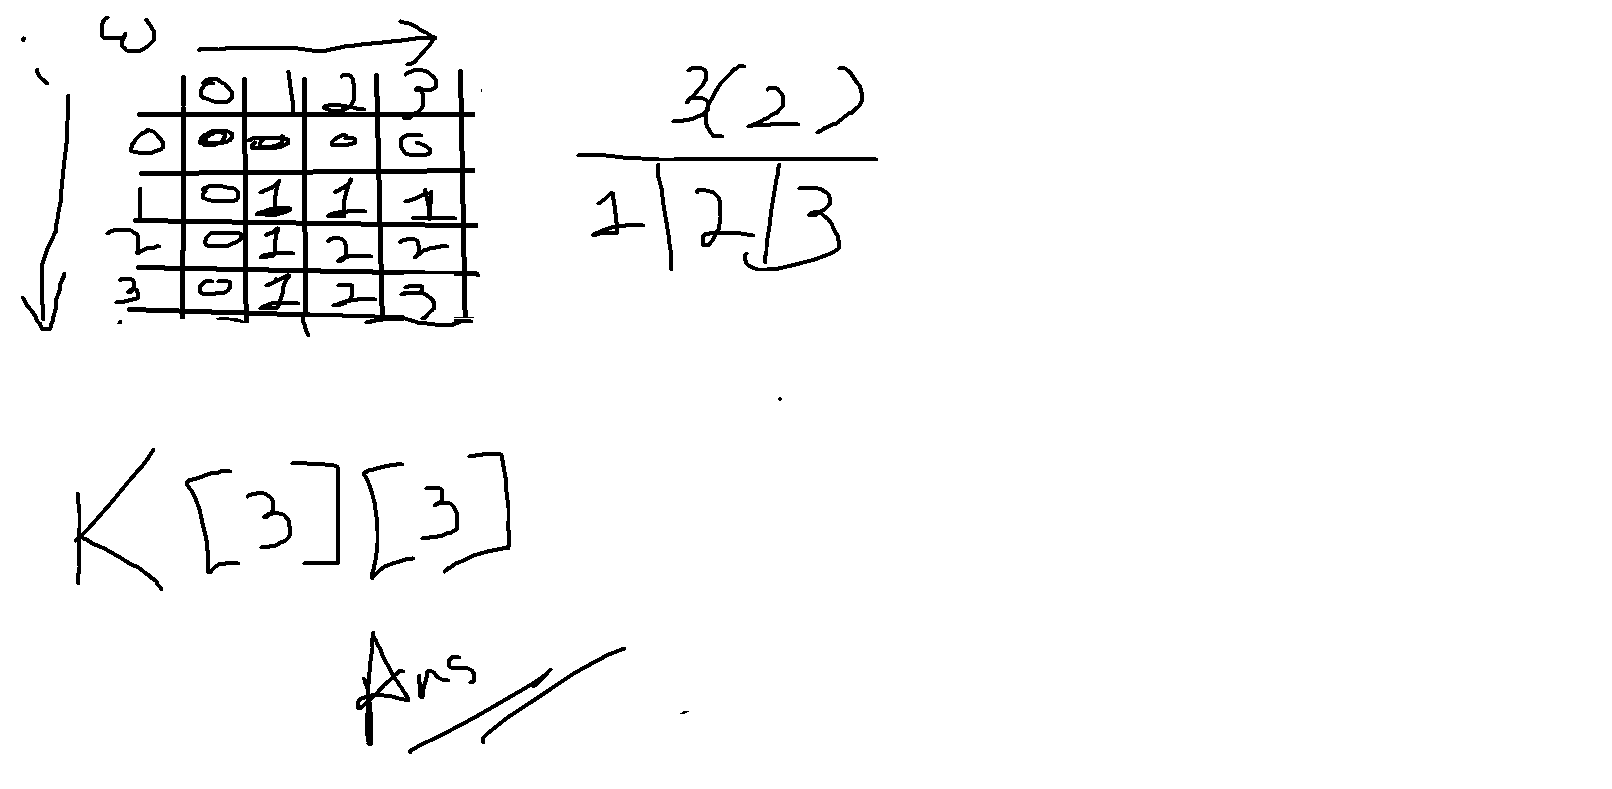 w
0 1 2 3
0 0 0 0 0
1 0 1 1 1
2 0 1 2 2
3 0 1 2 3
3(2)
1 2 3
K[3][3]
Ans